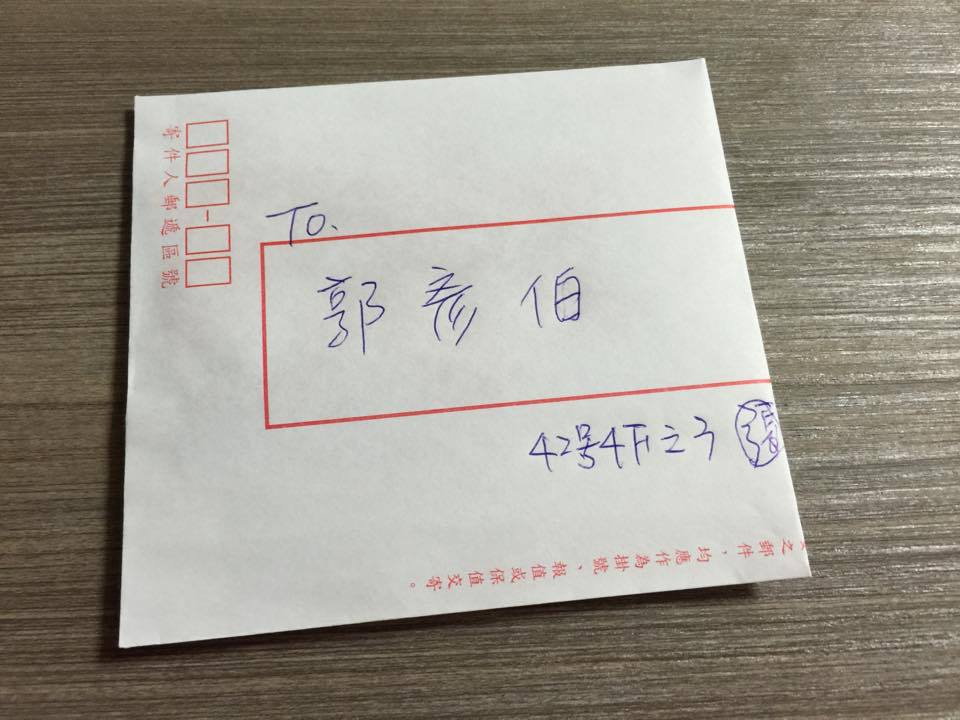 寄件人郵遞區號
To.
郭彥伯
42号4F之3 張
之郵件,均應作為掛號、報值或保值交寄。